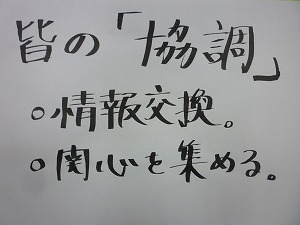 皆の「協調」
○情報交換。
○関心を集める。